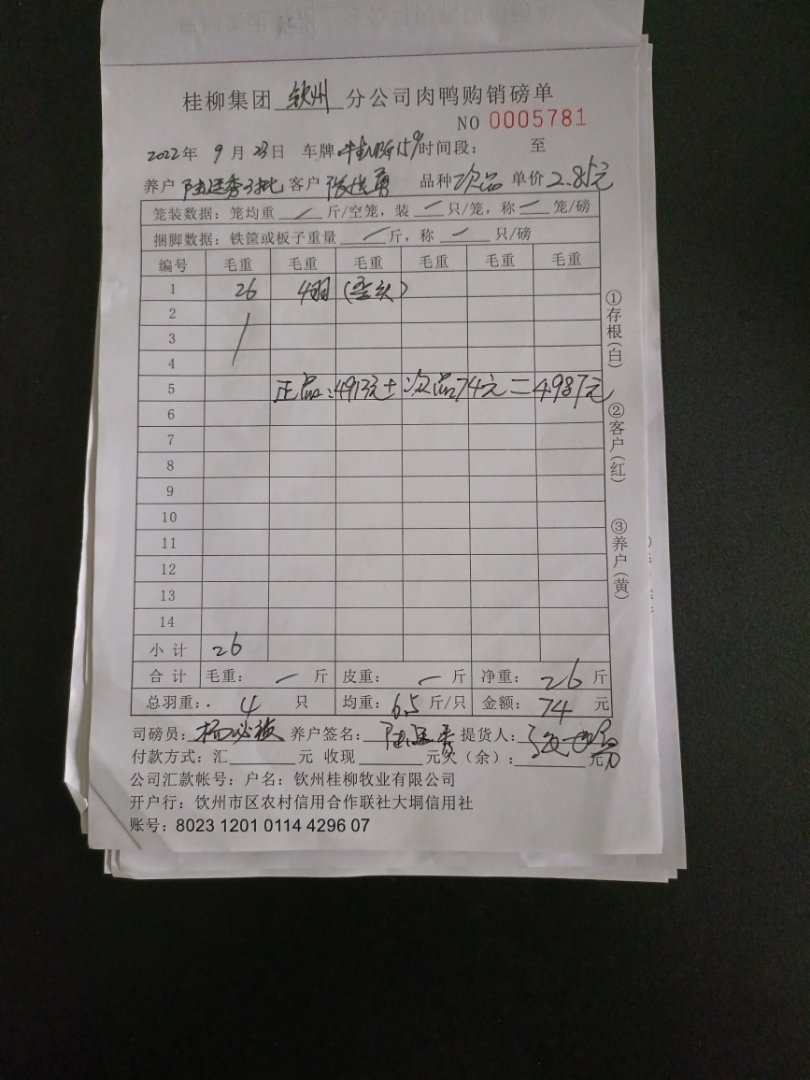 桂柳集团 钦州 分公司肉鸭购销磅单
NO 0005781
2022年 9月 23日 车牌 时间段： 至
养户 客户 品种 次品 单价 2.85元
笼装数据：笼均重 / 斤/空笼，装 / 只/笼，称 / 笼/磅
捆脚数据：铁筐或板子重量 / 斤，称 / 只/磅
编号 毛重 毛重 毛重 毛重 毛重 毛重
1 26 4羽
2
3
4
5 正品：4913元+次品74元=4987元
6
7
8
9
10
11
12
13
14
小计 26
合计 毛重： / 斤 皮重： / 斤 净重： 26 斤
总羽重： 4 只 均重： 6.5 斤/只 金额： 74 元
司磅员： 养户签名： 提货人：
付款方式：汇 元 收现 元欠（余）： 元
公司汇款帐号：户名：钦州桂柳牧业有限公司
开户行：钦州市区农村信用合作联社大垌信用社
账号：8023 1201 0114 4296 07
①存根（白）
②客户（红）
③养户（黄）